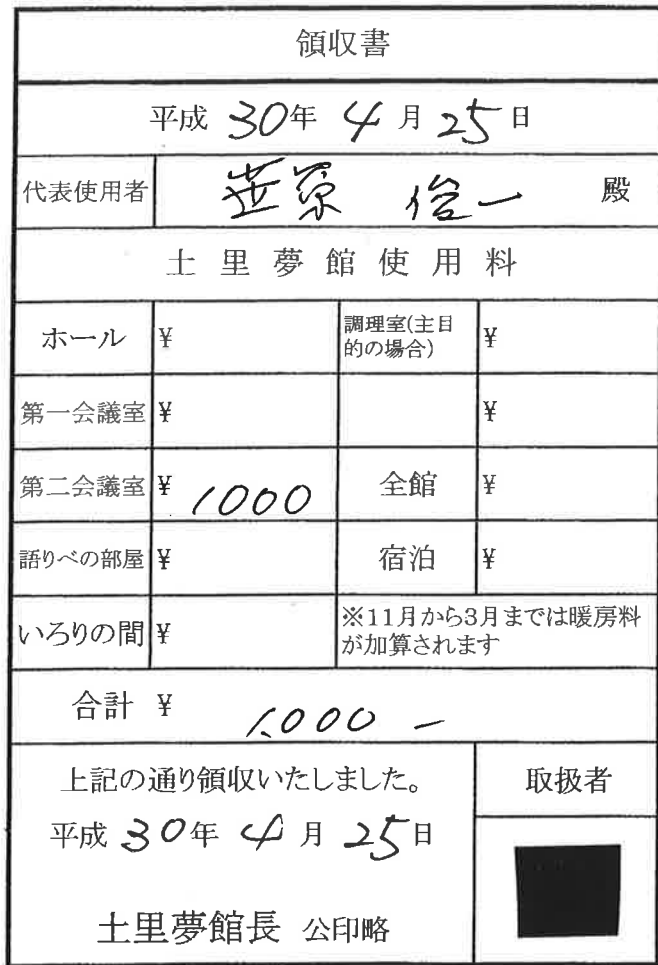 領収書
平成 30年 4月25日
代表使用者 笹原 俊一 殿
土里夢館使用料
ホール ¥ 調理室(主目的の場合) ¥
第一会議室 ¥ ¥
第二会議室 ¥ 1000 全館 ¥
語りべの部屋 ¥ 宿泊 ¥
いろりの間 ¥ ※11月から3月までは暖房料
が加算されます
合計 ¥ 1,000 -
上記の通り領収いたしました。 取扱者
平成 30年 4月 25日
土里夢館長 公印略